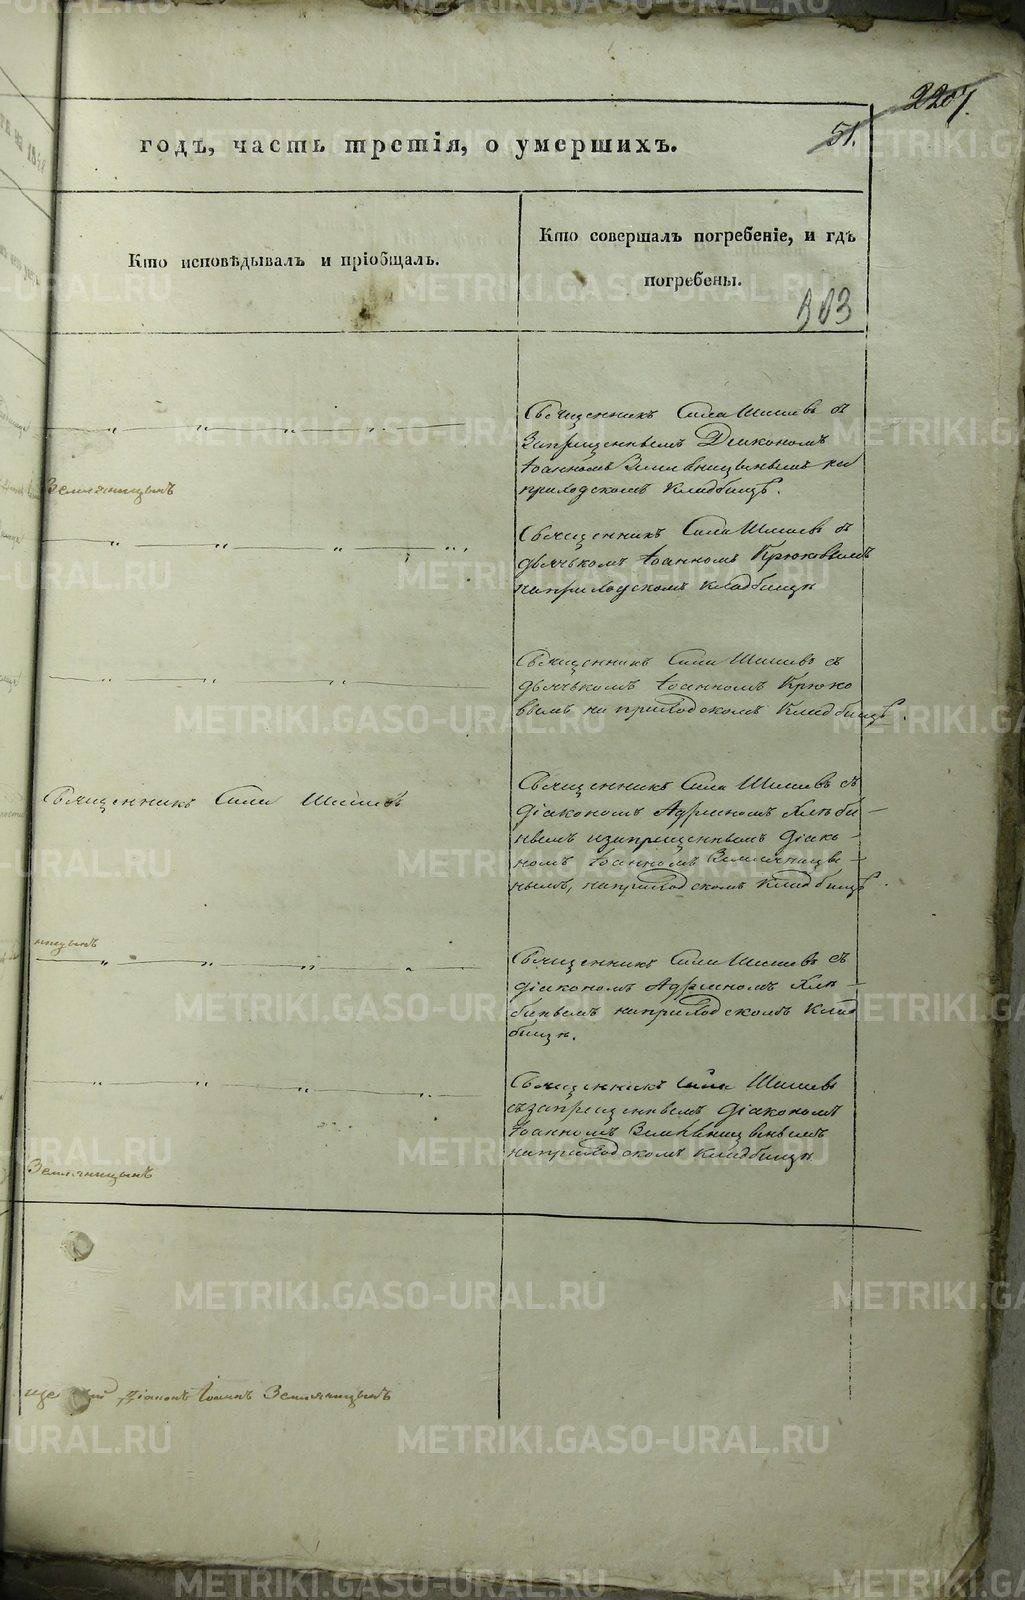 2207.
51.
годъ, часть третія, о умершихъ.
Кто исповѣдывалъ и пріобщалъ.
Кто совершалъ погребеніе, и гдѣ
погребены.
303
Священникъ Сила Шишевъ съ
Запрещеннымъ Діакономъ
Іоанномъ Земляницынымъ на
приходскомъ кладбищѣ.
Земляницынъ
Священникъ Сила Шишевъ съ
дьячькомъ Іоанномъ Крюковымъ
на приходскомъ кладбищѣ
Священникъ Сила Шишевъ съ
дьячькомъ Іоанномъ Крюко
вымъ на приходскомъ кладбищѣ.
Священникъ Сила Шишевъ
Священникъ Сила Шишевъ съ
діакономъ Адріаномъ Хлѣби-
нымъ и запрещеннымъ діако-
номъ Іоанномъ Земляницы-
нымъ, на приходскомъ кладбищѣ.
ницынъ
Священникъ Сила Шишевъ съ
діакономъ Адріаномъ Хлѣ-
бинымъ на приходскомъ клад
бищѣ.
Священникъ Сила Шишевъ
съ запрещеннымъ діакономъ
Іоанномъ Земляницынымъ
на приходскомъ кладбищѣ
Земляницынъ
діаконъ Іоаннъ Земляницынъ
METRIKI.GASO-URAL.RU